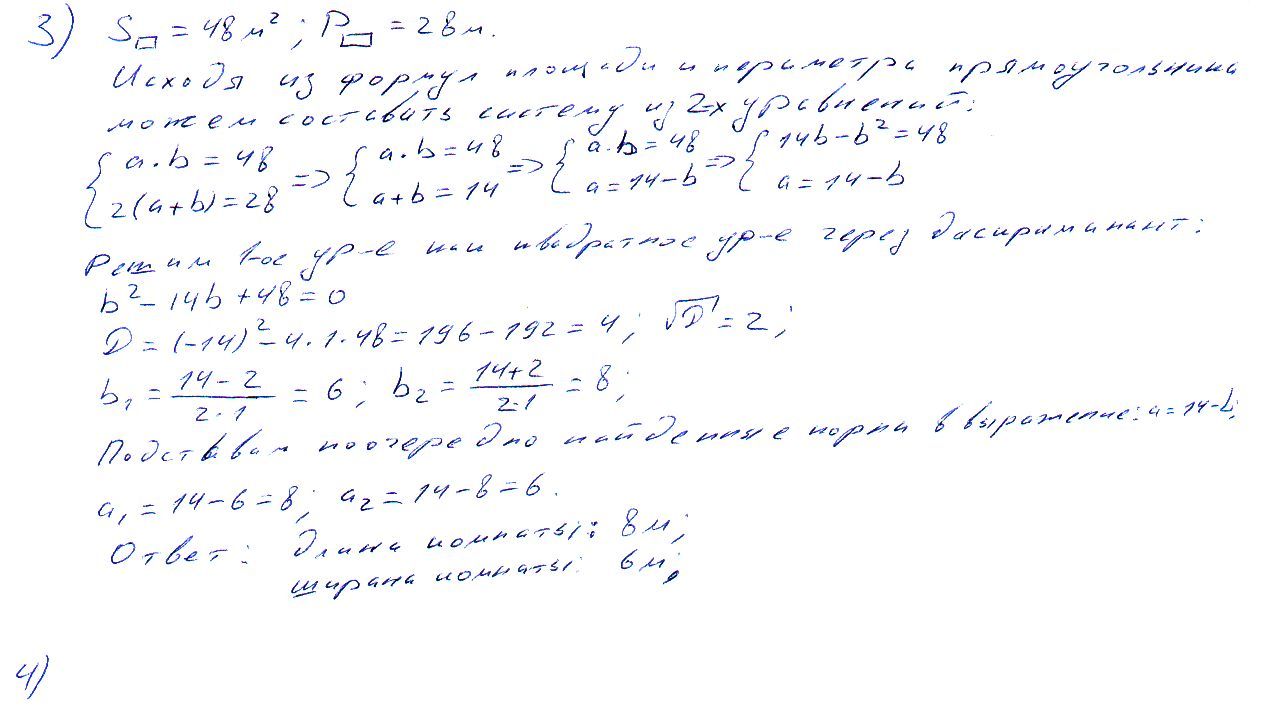 3) S▭ = 48 м²; P▭ = 28 м.
Исходя из формул площади и периметра прямоугольника
можем составить систему из 2-х уравнений:
{ a·b = 48 => { a·b = 48 => { a·b = 48 => { 14b − b² = 48
{ 2(a+b) = 28 { a+b = 14 { a = 14−b { a = 14−b
Решим 1-ое ур-е как квадратное ур-е через дискриминант:
b² − 14b + 48 = 0
D = (−14)² − 4·1·48 = 196 − 192 = 4; √D = 2;
b₁ = (14−2)/(2·1) = 6; b₂ = (14+2)/(2·1) = 8;
Подставим поочередно найденные корни в выражение: a = 14−b;
a₁ = 14−6 = 8; a₂ = 14−8 = 6.
Ответ: длина комнаты: 8 м;
ширина комнаты: 6 м.
4)